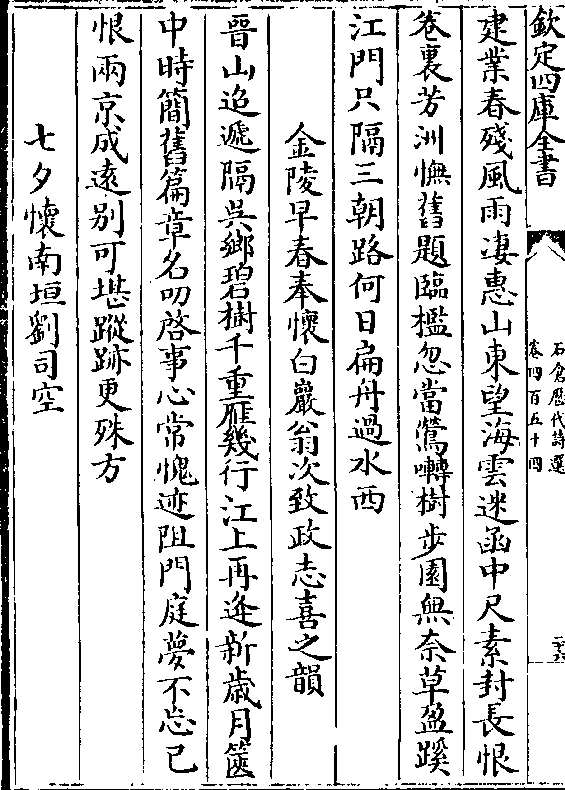 欽定四庫全書
石倉歴代詩選
卷四百五十四
二十六
建業春殘風雨凄惠山東望海雲迷函中尺素封長恨
卷裏芳洲憮舊題臨檻忽當鶯囀樹步園無奈草盈蹊
江門只隔三朝路何日扁舟過水西
金陵早春奉懷白巖翁次致政志喜之韻
晉山迢遞隔呉鄉碧樹千重雁幾行江上再逢新歲月篋
中時簡舊篇章名叨啓事心常愧迹阻門庭夢不忘已
恨兩京成遠别可堪蹤跡更殊方
七夕懷南垣劉司空